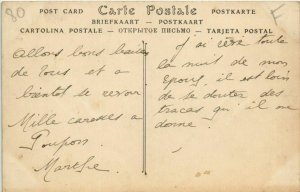 80
POST CARD Carte Postale POSTKARTE
BRIEFKAART — POSTKAART
CARTOLINA POSTALE — ОТКРЫТОЕ ПИСЬМО — TARJETA POSTAL
Allons bons baisers
de tous et a
bientot le revoir
Mille caresses a
Poupon
Marthe
J'ai rêvé toute
la nuit de mon
Epoux, il est loin
de se douter des
tracas qu'il me
donne.